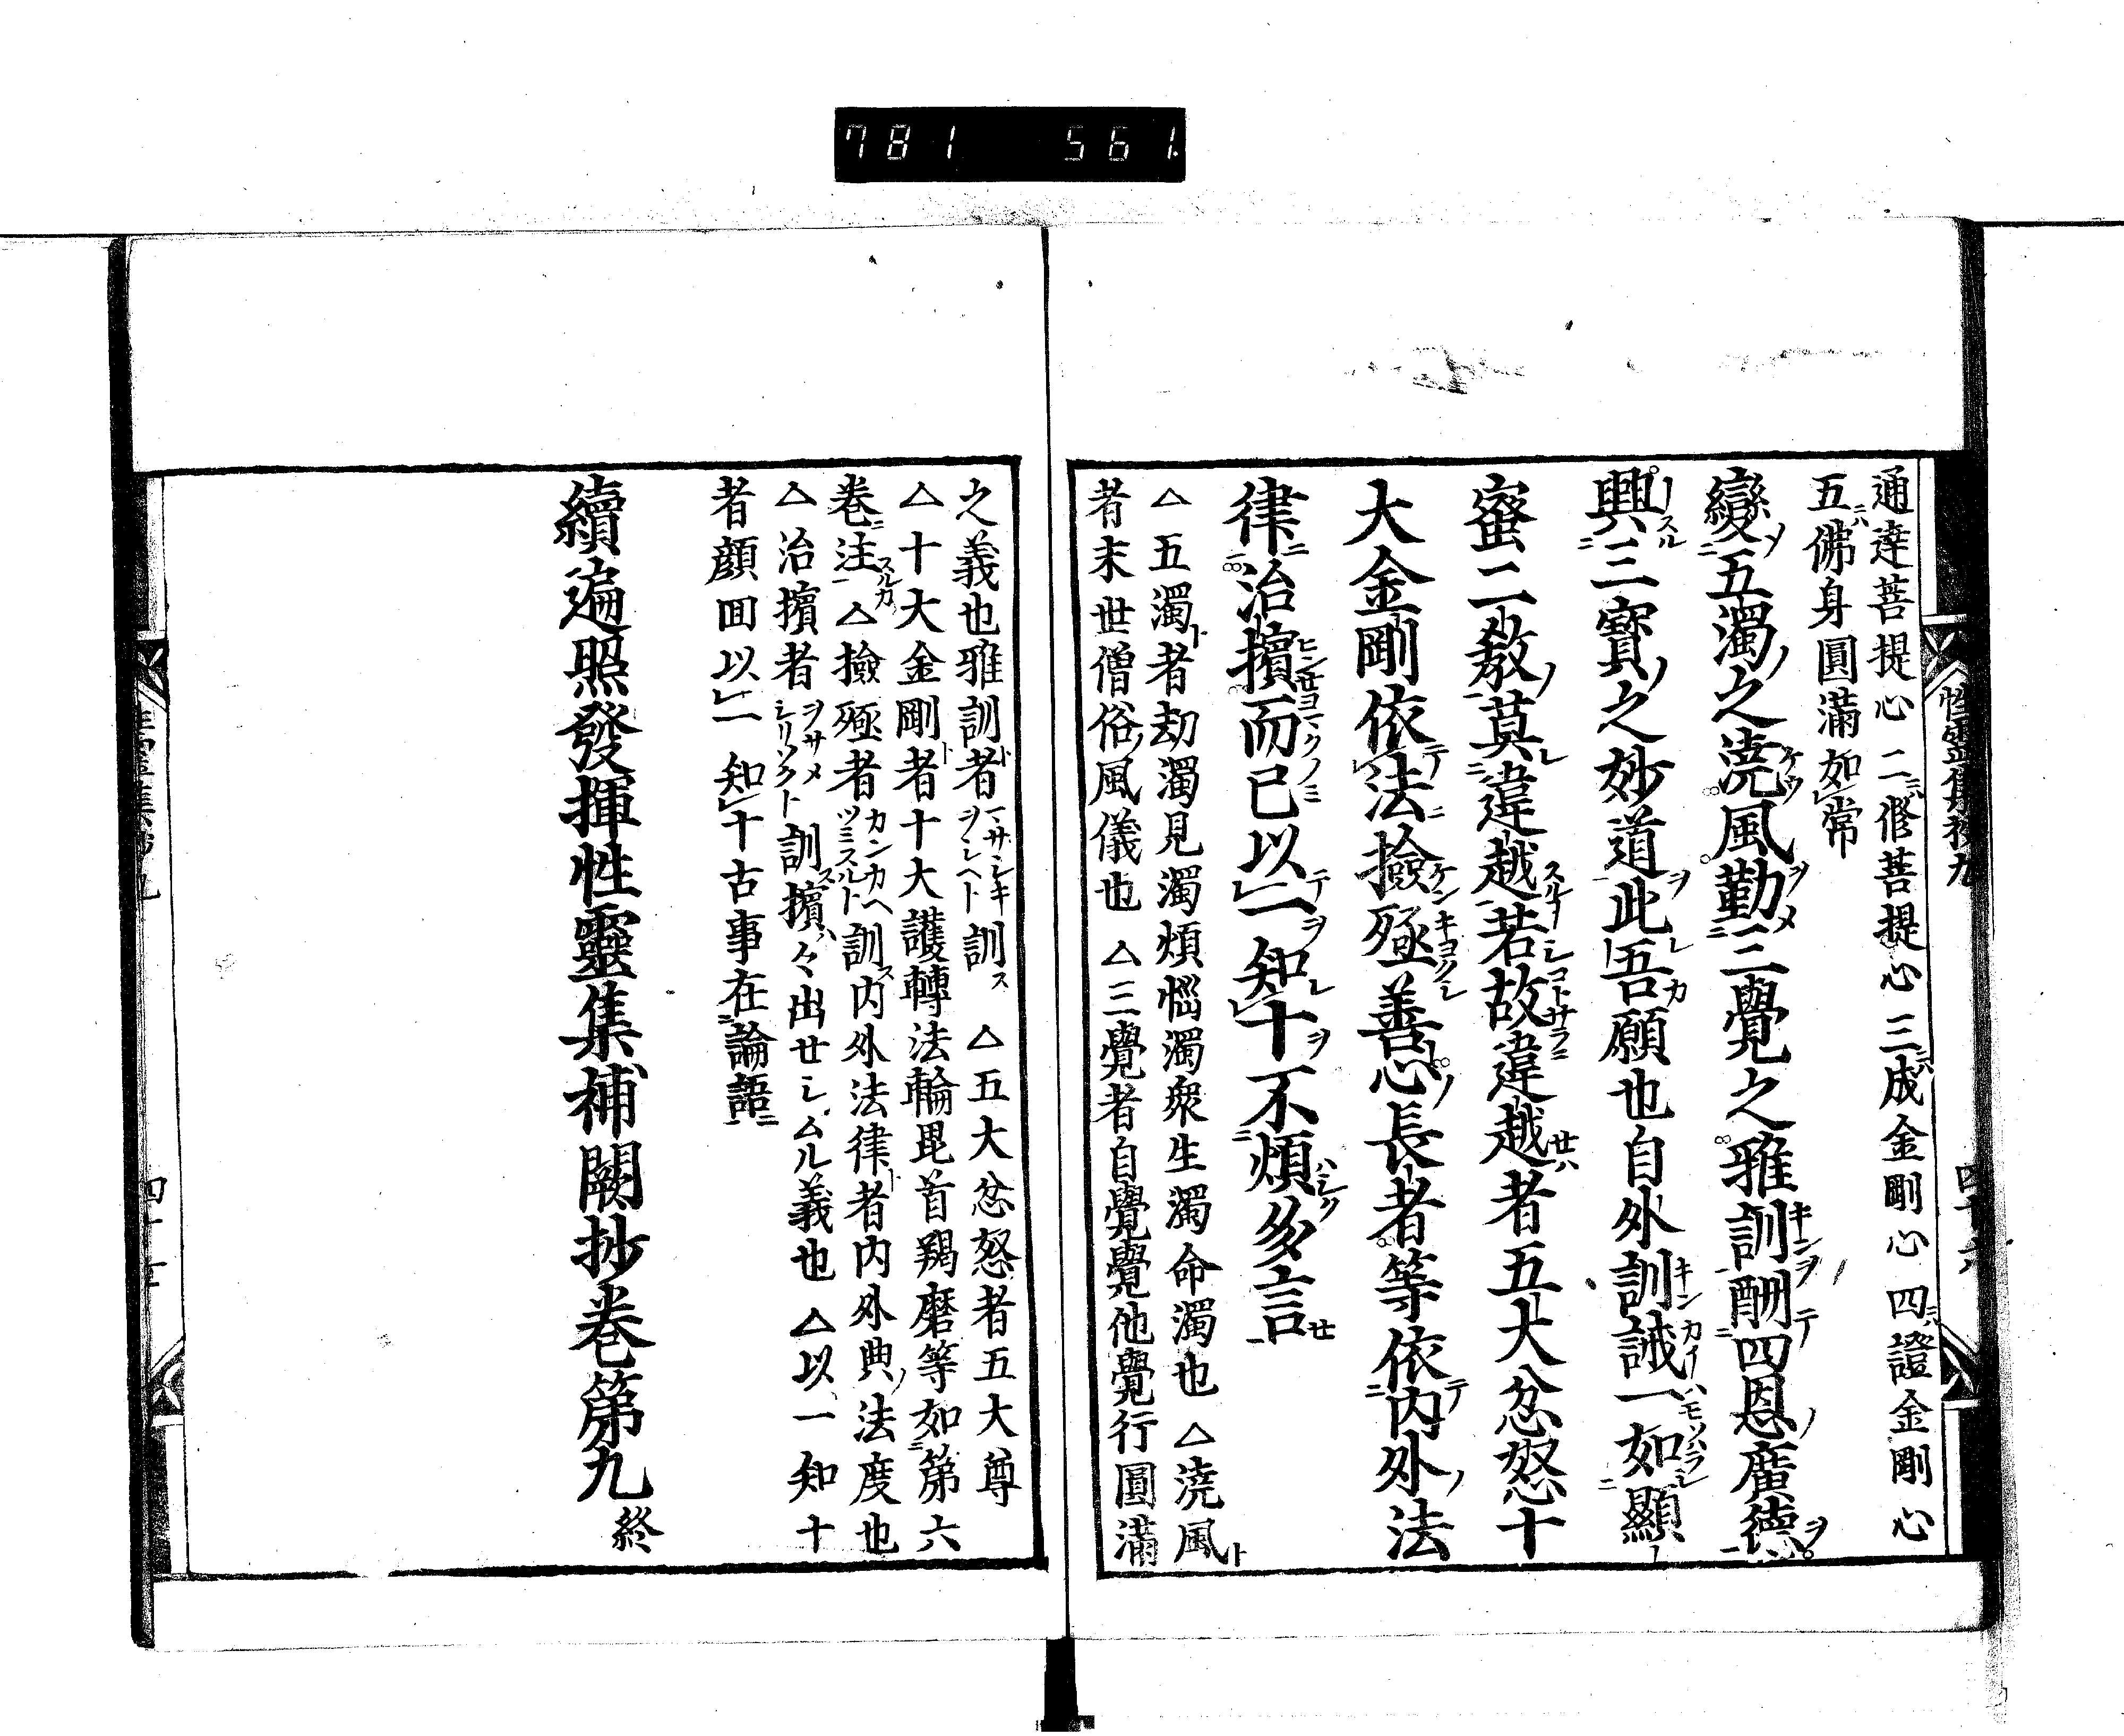 781 561
通達菩提心二修菩提心三成金剛心四證金剛心
五佛身圓滿如常
變五濁之澆風勤三覺之雅訓酬四恩廣德
興三寶之妙道此吾願也自外訓誡一如顯
蜜二教莫違越若故違越者五大忿怒十
大金剛依法撿殛善心長者等依內外法
律治擯而已以一知十不煩多言
△五濁者劫濁見濁煩惱濁衆生濁命濁也△澆風
者末世僧俗風儀也△三覺者自覺覺他覺行圓滿
之義也雅訓者マサシキヲシヘト訓ス△五大忿怒者五大尊
△十大金剛者十大護轉法輪毘首羯磨等如第六
卷注スルカ△撿殛者カンカヘツミスルト訓ス內外法律者內外典法度也
△治擯者ヲサメシリソクト訓ス擯ハ々出セシムル義也△以一知十
者顏回以一知十古事在論語
續遍照發揮性靈集補闕抄卷第九終